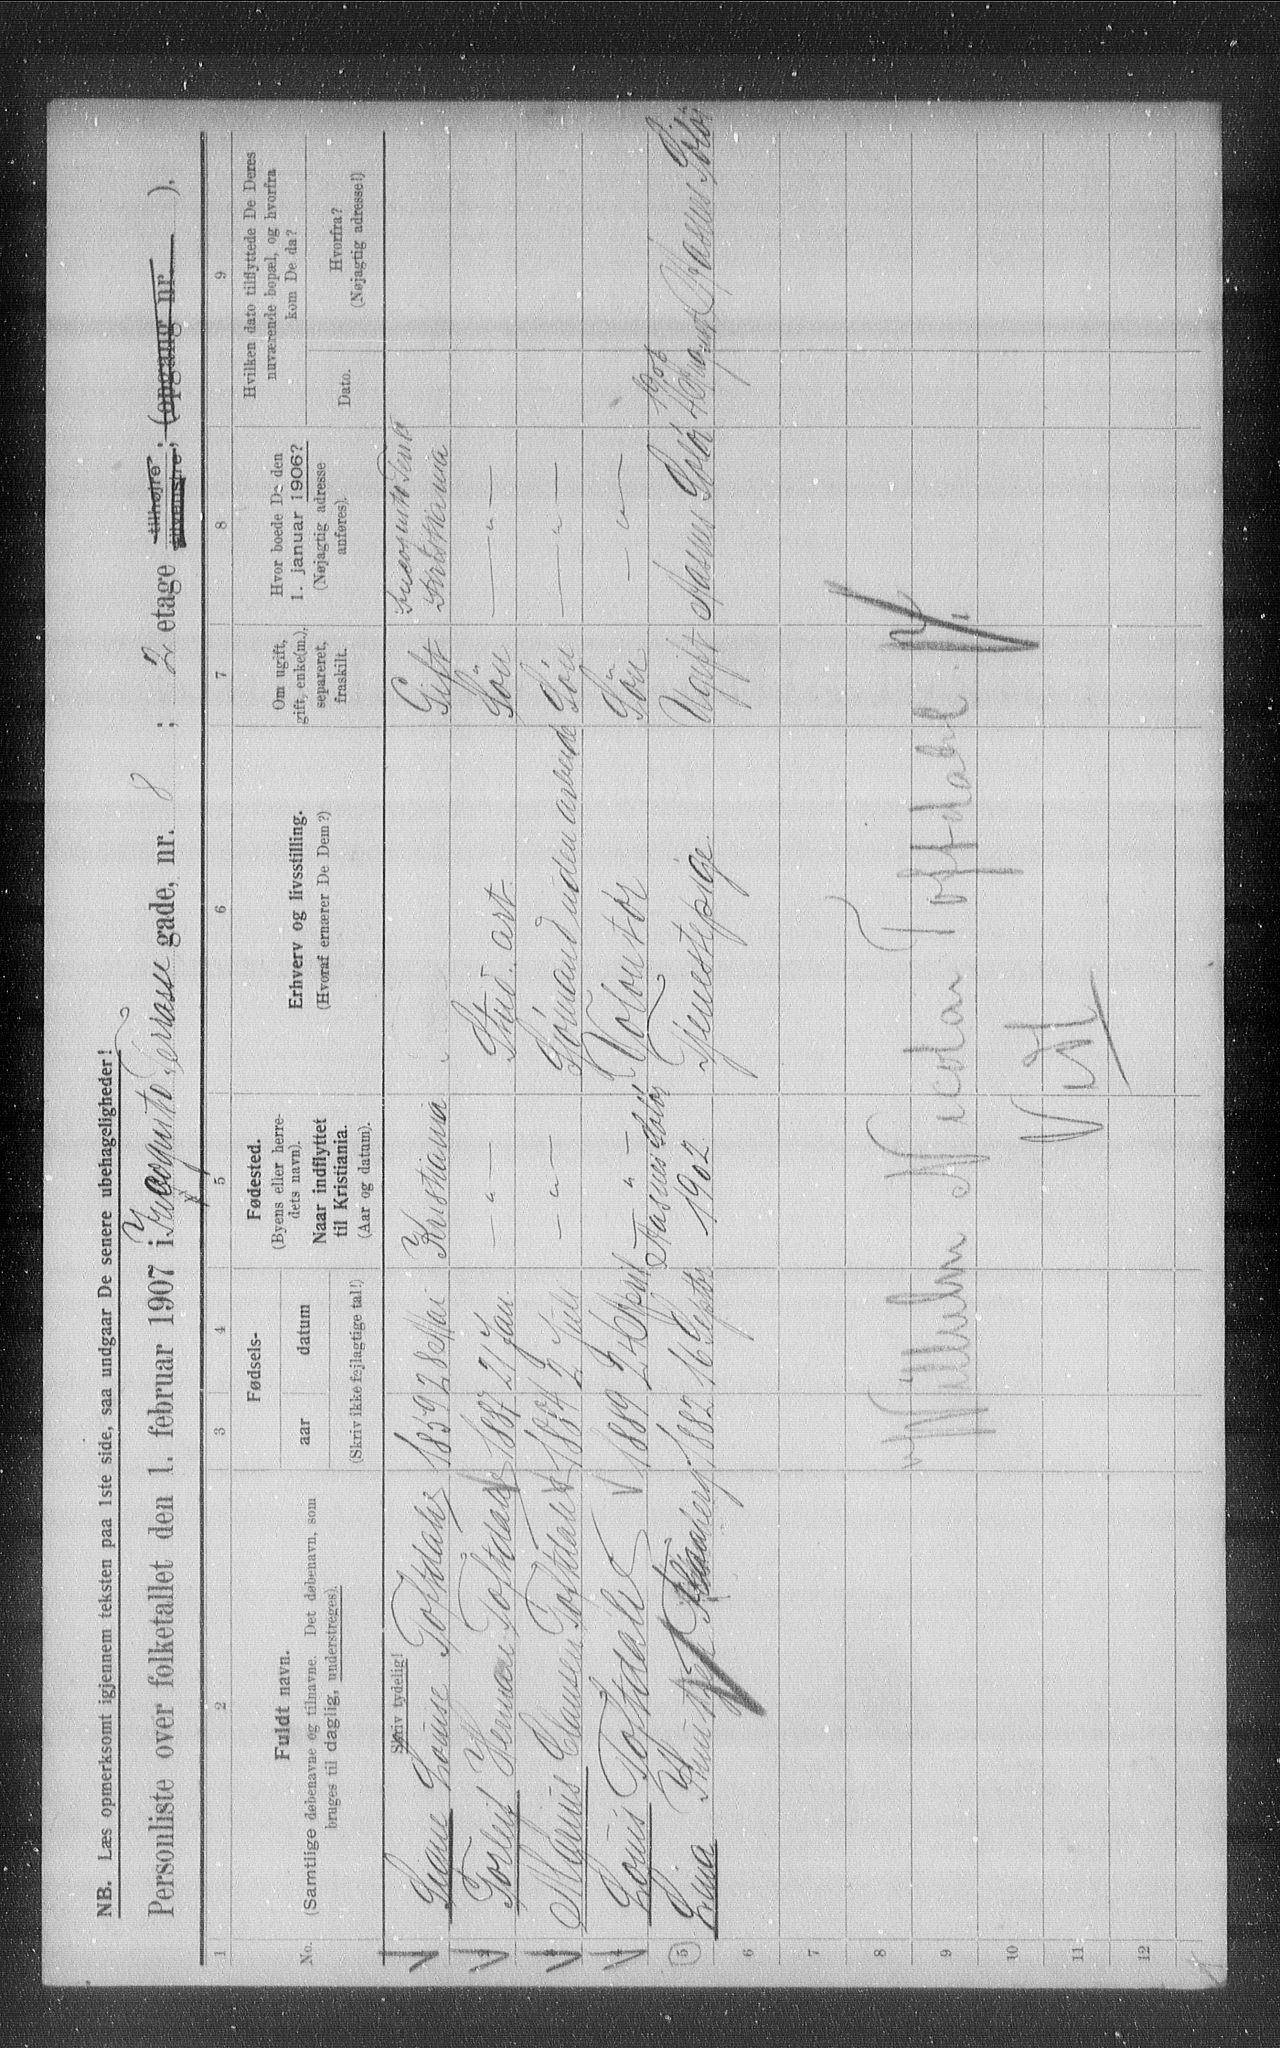 NB. Læs opmerksomt igjennem teksten paa 1ste side, saa undgaar De senere ubehageligheder!
Personliste over folketallet den 1. februar 1907 i Incognito Terrasse gade, nr. 8 ; 2 etage tilhøjre tilvenstre ; (opgang nr. ).
1 2 3 4 5 6 7 8 9
No.
Fuldt navn.
(Samtlige døbenavne og tilnavne. Det døbenavn, som
bruges til daglig, understreges).
Fødsels-
aar
datum
(Skriv ikke fejlagtige tal!)
Fødested.
(Byens eller herre-
dets navn).
Naar indflyttet
til Kristiania.
(Aar og datum).
Erhverv og livsstilling.
(Hvoraf ernærer De Dem?)
Om ugift,
gift, enke(m.),
separeret,
fraskilt.
Hvor boede De den
1. januar 1906?
(Nøjagtig adresse
anføres).
Hvilken dato tilflyttede De Deres
nuværende bopæl, og hvorfra
kom De da?
Dato.
Hvorfra?
(Nøjagtig adresse!)
Skriv tydelig!
1 Louise Toftdahl 1859 28 Mai Kristiania Gift Incognito Terr 8 Kristiania
2 Torleif Herman Toftdahl 1887 21 Jan. — " — Stud. art. Søn — " —
3 Marius Clausen Toftdahl 1884 2 Juli — " — Sømand uden arbeide Søn — " —
4 Louis Toftdahl 1889 24 April — " — Volontør Søn — " —
5 Lina 1882 16 Septbr Aasnes Solør 1902 Tjenestepige Ugift Aasnes Solør 1906 Aasnes Solør
6
7
8
9 Wilhelm Nicolai Toftdahl
10
11
12